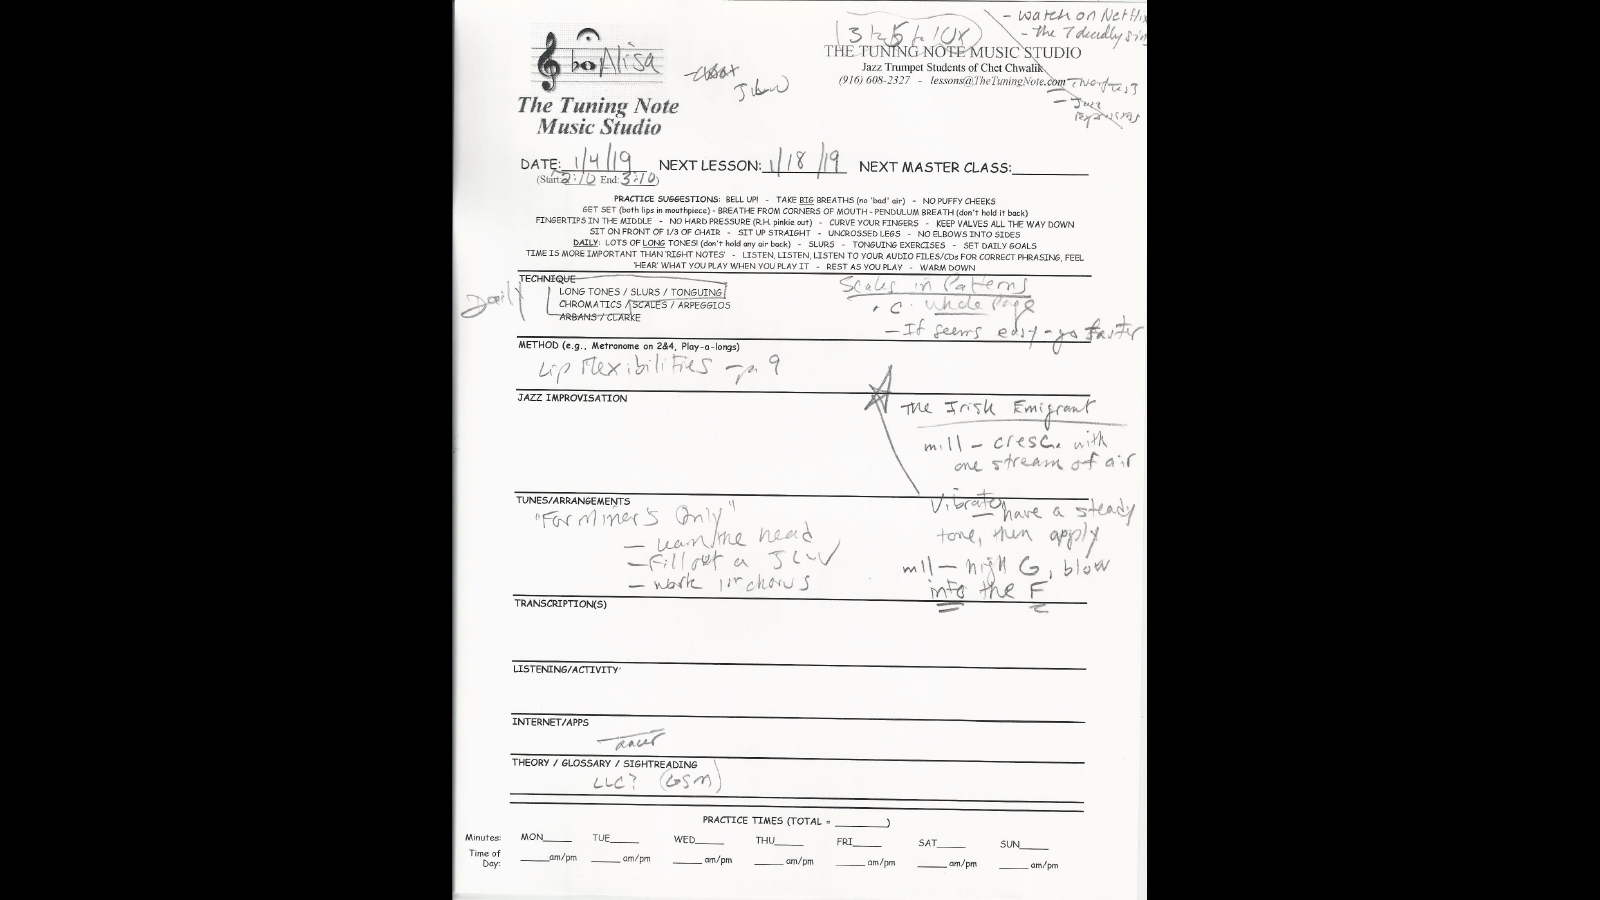 - watch on Netflix
- the 7 deadly sins
3 to 5 to 10X
Alisa
THE TUNING NOTE MUSIC STUDIO
Jazz Trumpet Students of Chet Chwalik
(916) 608-2327 - lessons@TheTuningNote.com
The Tuning Note
Music Studio
- Jazz
DATE: 1/4/19 NEXT LESSON: 1/18/19 NEXT MASTER CLASS:
(Start: 2:10 End: 3:10)
PRACTICE SUGGESTIONS: BELL UP! - TAKE BIG BREATHS (no 'bad' air) - NO PUFFY CHEEKS
GET SET (both lips in mouthpiece) - BREATHE FROM CORNERS OF MOUTH - PENDULUM BREATH (don't hold it back)
FINGERTIPS IN THE MIDDLE - NO HARD PRESSURE (R.H. pinkie out) - CURVE YOUR FINGERS - KEEP VALVES ALL THE WAY DOWN
SIT ON FRONT OF 1/3 OF CHAIR - SIT UP STRAIGHT - UNCROSSED LEGS - NO ELBOWS INTO SIDES
DAILY: LOTS OF LONG TONES! (don't hold any air back) - SLURS - TONGUING EXERCISES - SET DAILY GOALS
TIME IS MORE IMPORTANT THAN 'RIGHT NOTES' - LISTEN, LISTEN, LISTEN TO YOUR AUDIO FILES/CDs FOR CORRECT PHRASING, FEEL
'HEAR' WHAT YOU PLAY WHEN YOU PLAY IT - REST AS YOU PLAY - WARM DOWN
TECHNIQUE
Daily
LONG TONES / SLURS / TONGUING
CHROMATICS / SCALES / ARPEGGIOS
ARBANS / CLARKE
Scales in Patterns
• C: whole page
- If seems easy - go faster
METHOD (e.g., Metronome on 2&4, Play-a-longs)
Lip Flexibilities - p. 9
JAZZ IMPROVISATION
The Irish Emigrant
m11 - cresc. with
one stream of air
Vibrato - have a steady
tone, then apply
m11 - high G, blow
into the F
TUNES/ARRANGEMENTS
"For Miner's Only"
- learn the head
- Fill out a JLW
- work 1st chorus
TRANSCRIPTION(S)
LISTENING/ACTIVITY
INTERNET/APPS
THEORY / GLOSSARY / SIGHTREADING
LLC? (GSM)
PRACTICE TIMES (TOTAL = )
Minutes: MON TUE WED THU FRI SAT SUN
Time of Day: am/pm am/pm am/pm am/pm am/pm am/pm am/pm